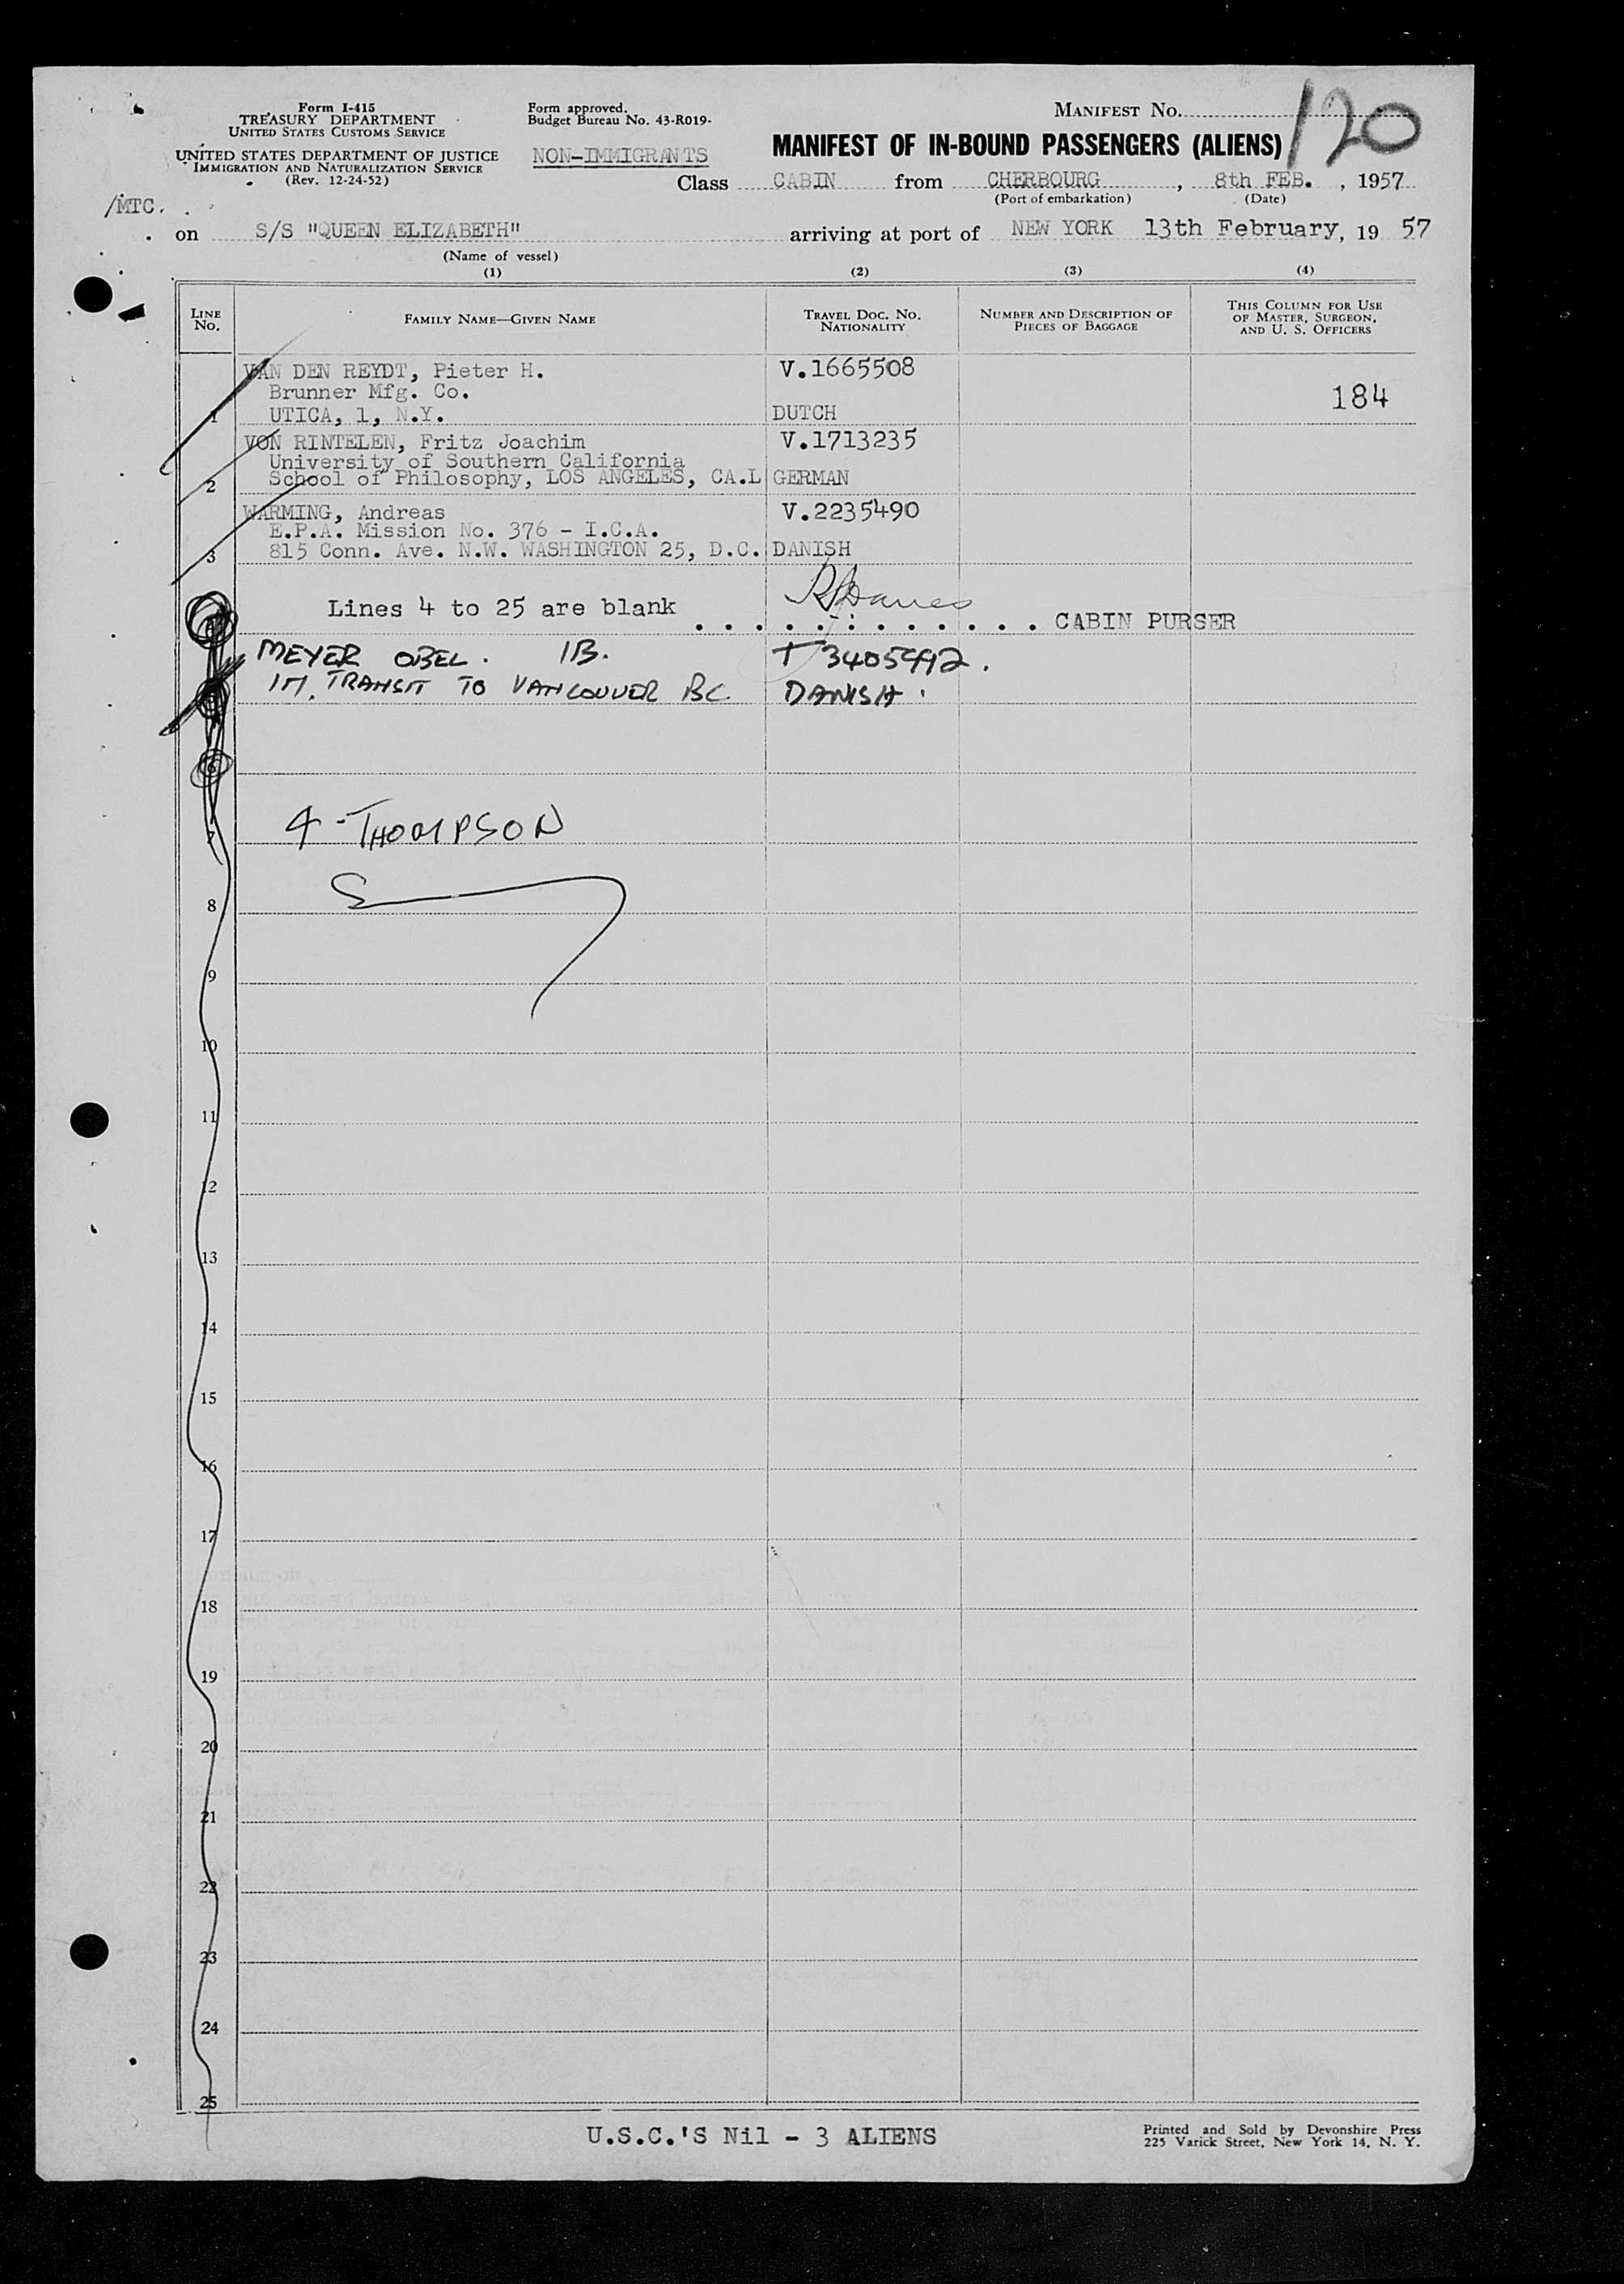 Form I-415
TREASURY DEPARTMENT
UNITED STATES CUSTOMS SERVICE
UNITED STATES DEPARTMENT OF JUSTICE
IMMIGRATION AND NATURALIZATION SERVICE
(Rev. 12-24-52)
Form approved.
Budget Bureau No. 43-R019-
NON-IMMIGRANTS
MANIFEST NO. 120
MANIFEST OF IN-BOUND PASSENGERS (ALIENS)
Class CABIN from CHERBOURG, 8th FEB., 1957
(Port of embarkation) (Date)
/MTC.
on S/S "QUEEN ELIZABETH" arriving at port of NEW YORK 13th February, 19 57
(Name of vessel)
(1) (2) (3) (4)
LINE NO. FAMILY NAME—GIVEN NAME TRAVEL DOC. NO. NATIONALITY NUMBER AND DESCRIPTION OF PIECES OF BAGGAGE THIS COLUMN FOR USE OF MASTER, SURGEON, AND U. S. OFFICERS
VAN DEN REYDT, Pieter H. V.1665508
Brunner Mfg. Co. 184
1 UTICA, 1, N.Y. DUTCH
VON RINTELEN, Fritz Joachim V.1713235
University of Southern California
2 School of Philosophy, LOS ANGELES, CA.L GERMAN
WARMING, Andreas V.2235490
E.P.A. Mission No. 376 - I.C.A.
3 815 Conn. Ave. N.W. WASHINGTON 25, D.C. DANISH
Lines 4 to 25 are blank . . . . . . . . . . . . CABIN PURSER
MEYER OBEL. IB. T 3405992.
IN. TRANSIT TO VANCOUVER BC. DANISH.
6
4-THOMPSON
7
8
9
10
11
12
13
14
15
16
17
18
19
20
21
22
23
24
25
U.S.C.'S Nil - 3 ALIENS
Printed and Sold by Devonshire Press
225 Varick Street, New York 14, N. Y.